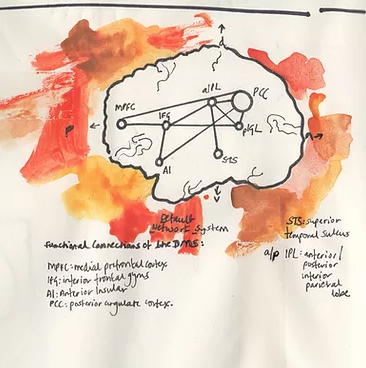 aIPL
PCC
MPFC
IFG
pIPL
P
AI
STS
Default
Network System
Functional Connections of the DMS:
STS: superior
temporal sulcus
MPFC: medial prefrontal cortex
IFG: inferior frontal gyrus
AI: Anterior Insular
PCC: posterior cingulate cortex.
a/p IPL: anterior/
posterior
inferior
parietal
lobe